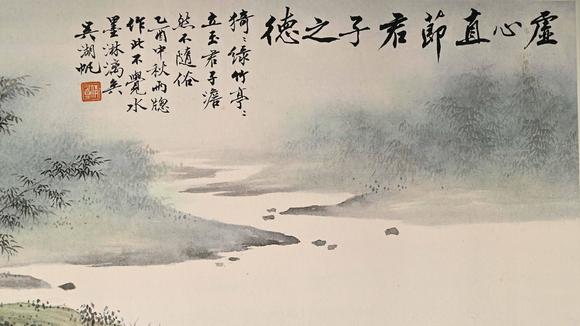 虛心直節君子之德
猗〻綠竹亭〻
立玉君子澹
然不隨俗
乙酉中秋雨牕
作此不覺水
墨淋漓矣
吳湖帆